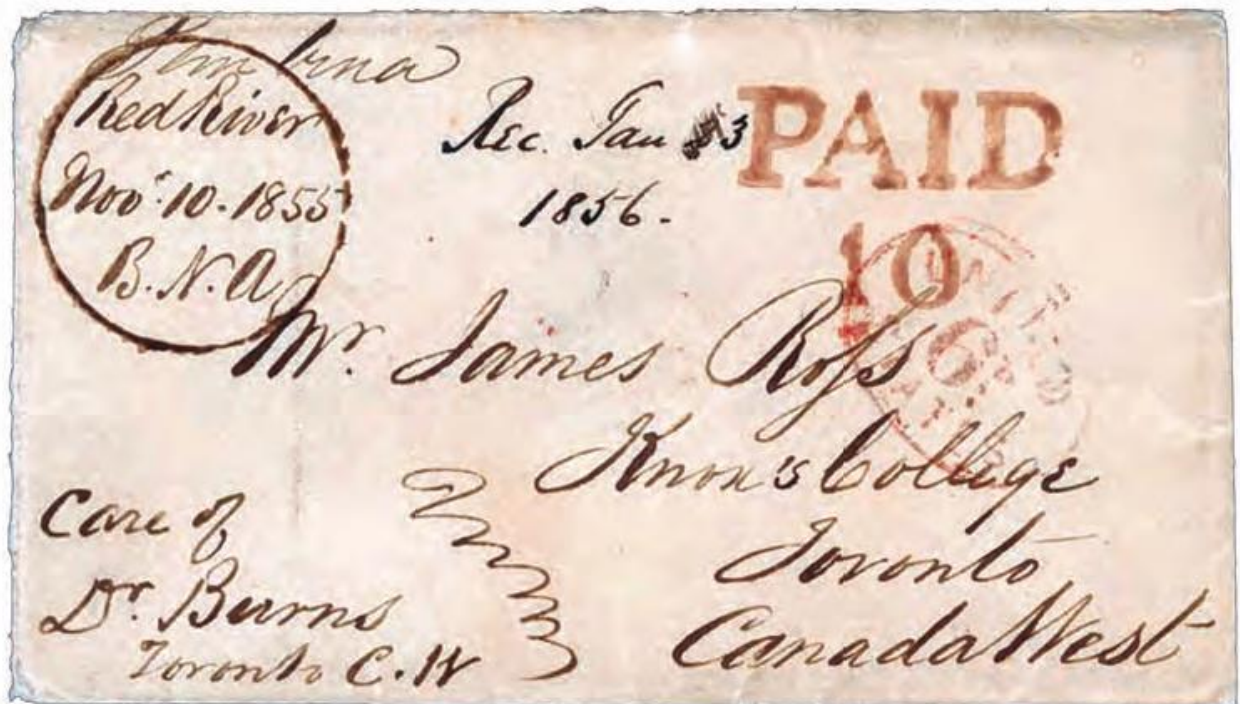 Pembina
Red River
Nov.r 10. 1855
B.N.A
Rec. Jan 3
1856.
PAID
10
6
Mr. James Ross
Knox's College
Toronto
Canada West
Care of
Dr. Burns
Toronto C.W